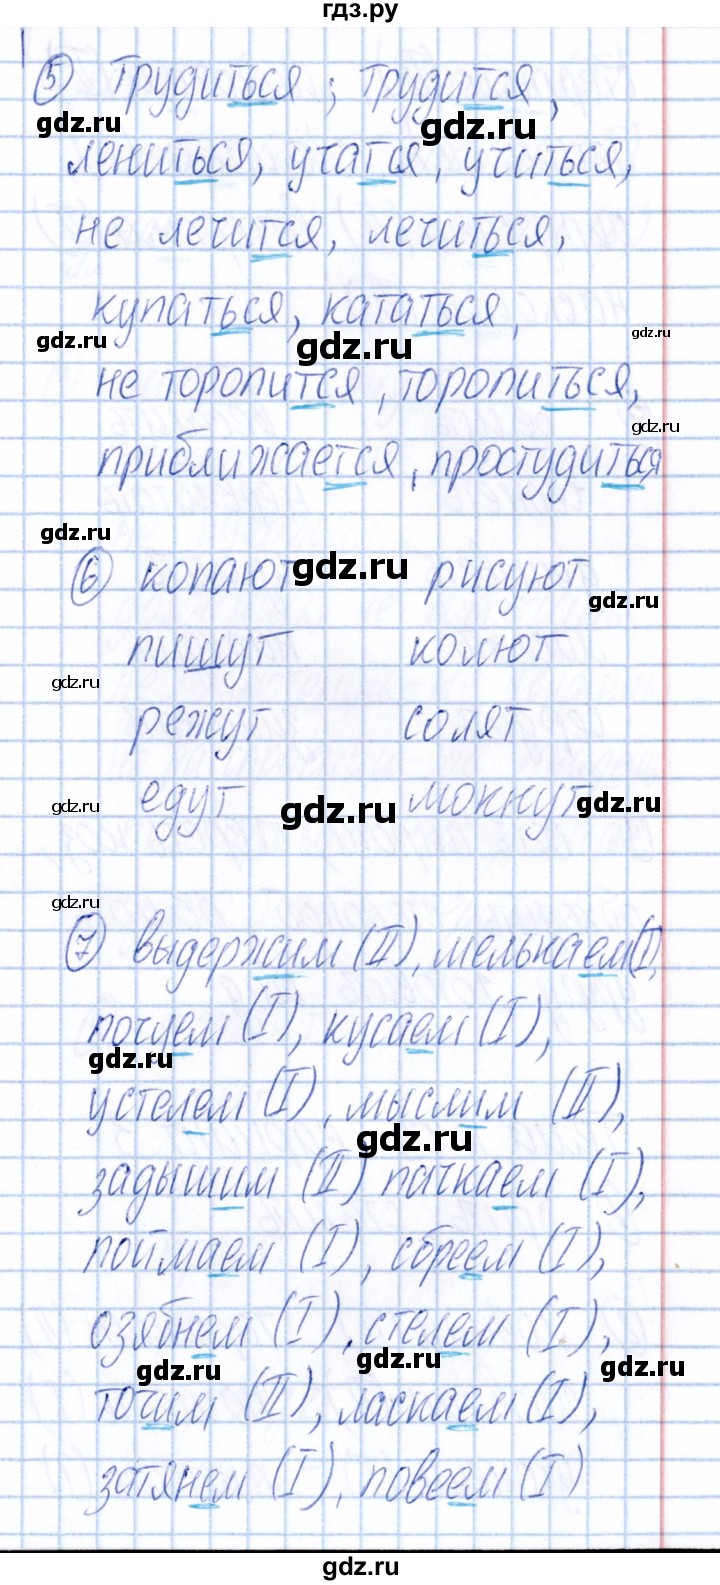 гдз.ру
5 Трудиться; трудится,
gdz.ru gdz.ru
лениться, учатся, учиться,
не лечится, лечиться,
купаться, кататься,
gdz.ru gdz.ru gdz.ru
не торопится, торопиться,
gdz.ru
приближается, простудиться
gdz.ru
6 копают рисуют
gdz.ru gdz.ru
пишут колют
gdz.ru
режут солят
едут мокнут
gdz.ru gdz.ru gdz.ru
gdz.ru
7 выдержим (II), мелькаем (I),
почуем (I), кусаем (I),
gdz.ru
устелем (I), мыслим (II),
gdz.ru
задышим (II) пачкаем (I),
поймаем (I), сбреем (I),
озябнем (I), стелем (I),
gdz.ru gdz.ru gdz.ru
точим (II), ласкаем (I),
затянем (I), повеем (I)
gdz.ru